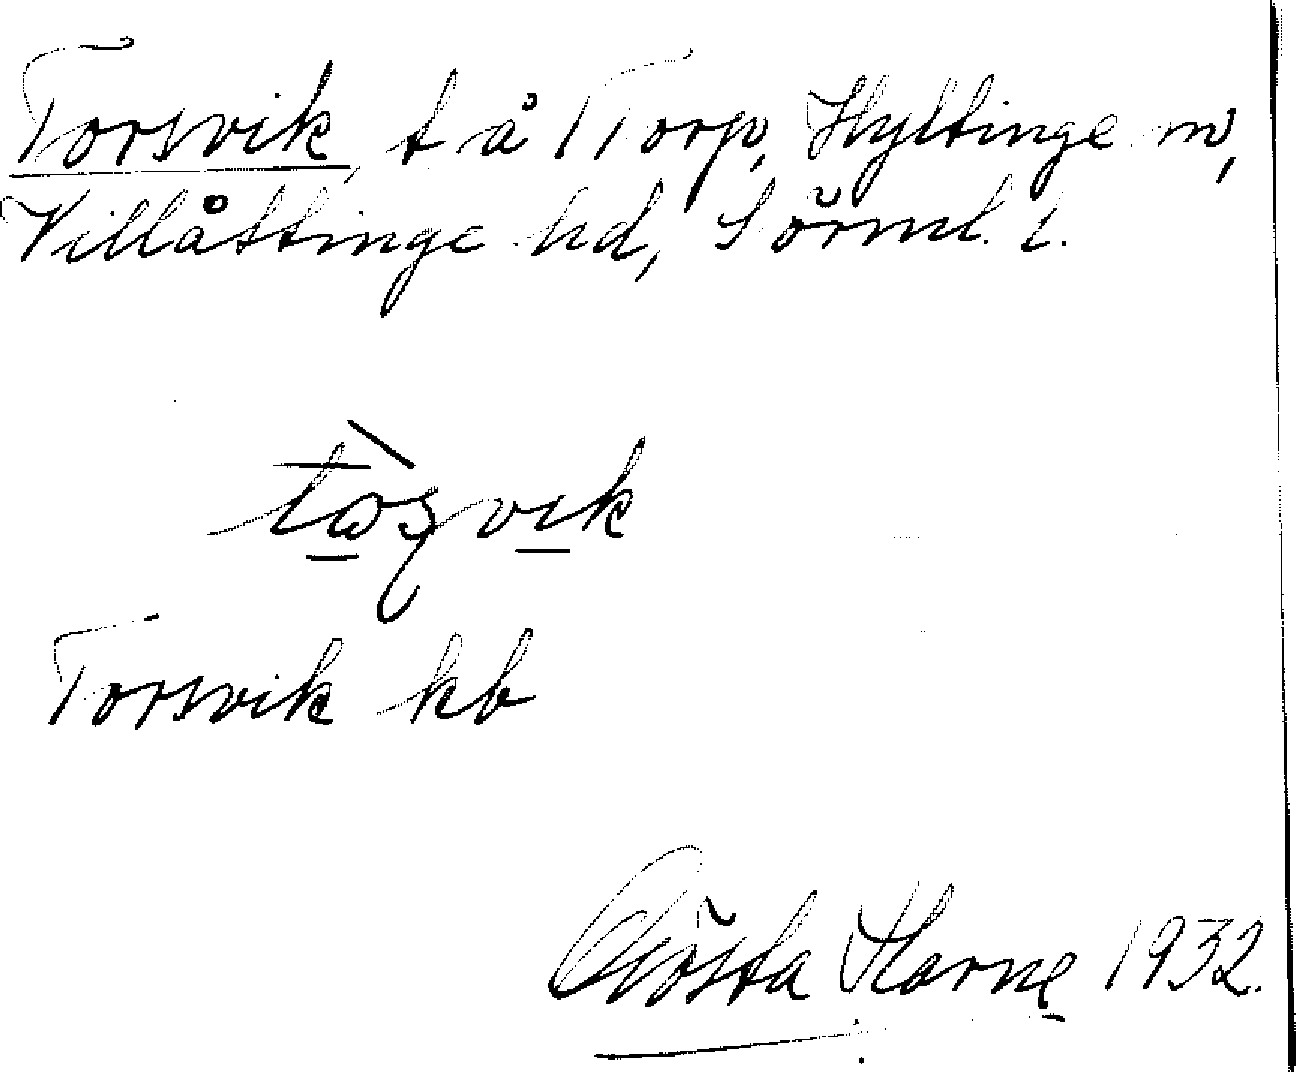 Torsvik, t å Torp, Hyltinge sn,
Villåttinge hd, Sörml. l.
Torsvik kb
Gösta 1932.